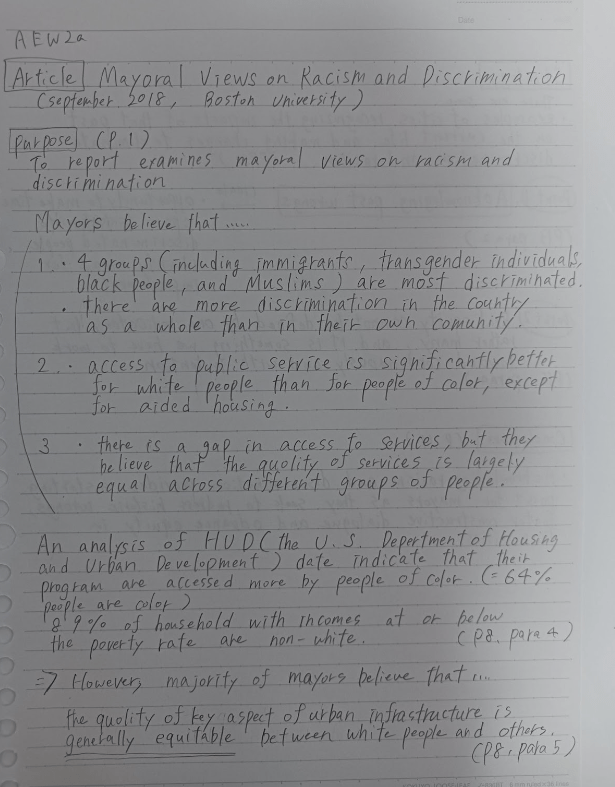 Date
AEW2a
Article Mayoral Views on Racism and Discrimination
(september 2018, Boston University)
Purpose (P.1)
To report examines mayoral views on racism and
discrimination
Mayors believe that .....
1. · 4 groups (including immigrants, transgender individuals,
black people, and Muslims) are most discriminated.
· there are more discrimination in the country
as a whole than in their own comunity.
2. · access to public service is significantly better
for white people than for people of color, except
for aided housing.
3 · there is a gap in access to services, but they
believe that the quolity of services is largely
equal across different groups of people.
An analysis of HUD (the U.S. Depertment of Housing
and Urban Development) date indicate that their
program are accessed more by people of color. (= 64%
people are color)
89% of household with incomes at or below
the poverty rate are non-white. (P8, para 4)
=> However, majority of mayors believe that ....
the quolity of key aspect of urban infrastructure is
generally equitable between white people and others.
(P8, para 5)